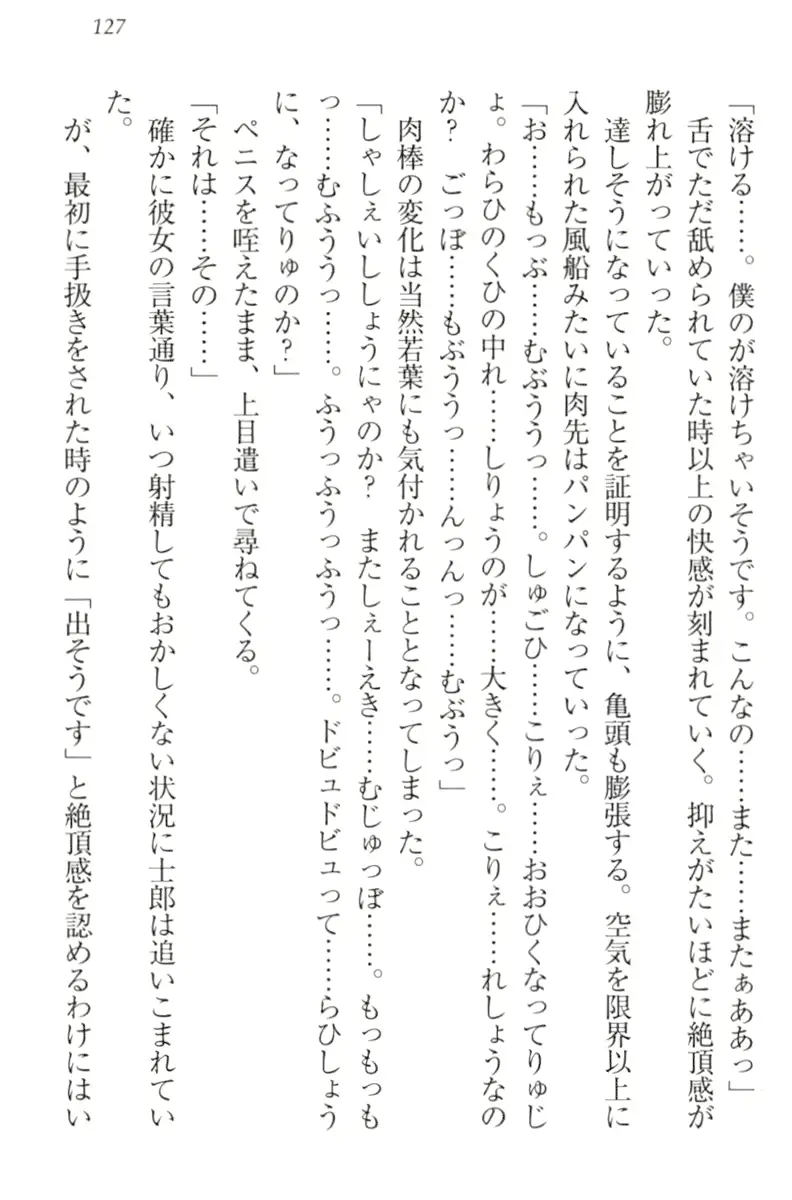 127
「溶ける……。僕のが溶けちゃいそうです。こんなの……また……またぁああっ」
舌でただ舐められていた時以上の快感が刻まれていく。抑えがたいほどに絶頂感が
膨れ上がっていった。
達しそうになっていることを証明するように、亀頭も膨張する。空気を限界以上に
入れられた風船みたいに肉先はパンパンになっていった。
「お……もっぶ……むぶううっ……。しゅごひ……こりぇ……おおひくなってりゅじ
ょ。わらひのくひの中れ……しりょうのが……大きく……。こりぇ……れしょうなの
か?　ごっぽ……もぶううっ……んっんっ……むぶうっ」
肉棒の変化は当然若葉にも気付かれることとなってしまった。
「しゃしぇいししょうにゃのか?　またしぇーえき……むじゅっぽ……。もっもっも
っ……むふううっ……。ふうっふうっふうっ……。ドビュドビュって……らひしょう
に、なってりゅのか?」
ペニスを咥えたまま、上目遣いで尋ねてくる。
「それは……その……」
確かに彼女の言葉通り、いつ射精してもおかしくない状況に士郎は追いこまれてい
た。
が、最初に手扱きをされた時のように「出そうです」と絶頂感を認めるわけにはい